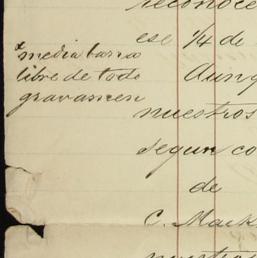 reconoce
ese 1/4 de
media barra
libre de todo
gravamen
Aunq
nuestros
segun co
de
C. Mack